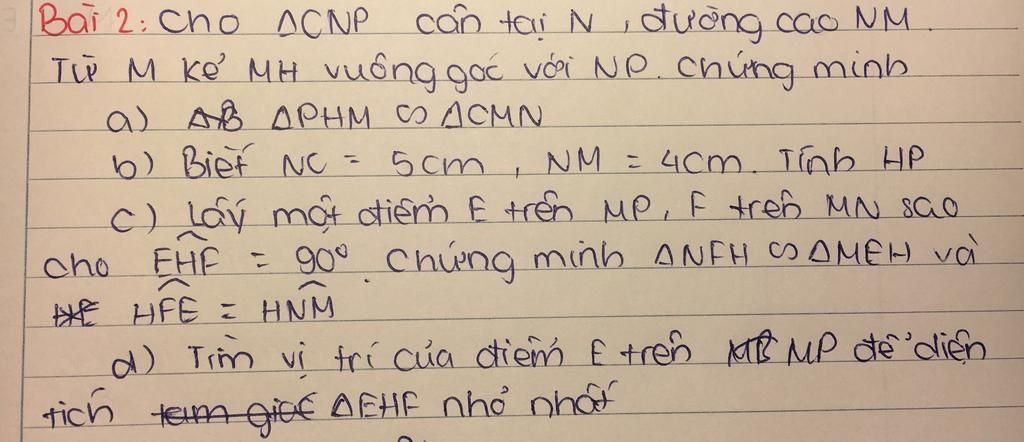 Bài 2: Cho ΔCNP cân tại N, đường cao NM.
Từ M kẻ MH vuông góc với NP. Chứng minh
a) ΔPHM ∽ ΔCMN
b) Biết NC = 5cm, NM = 4cm. Tính HP
c) Lấy một điểm E trên MP, F trên MN sao
cho EHF = 90°. Chứng minh ΔNFH ∽ ΔMEH và
HFE = HNM
d) Tìm vị trí của điểm E trên MP để diện
tích ΔEHF nhỏ nhất